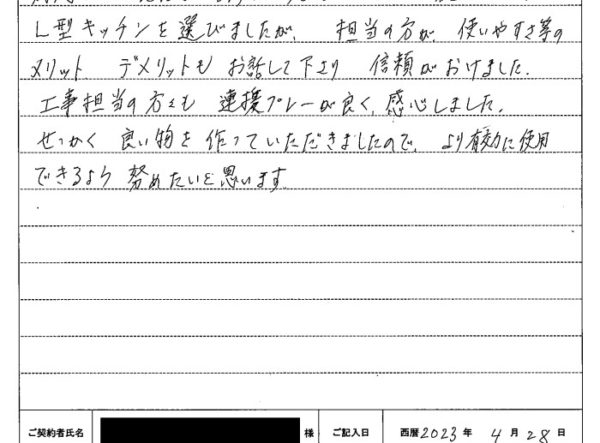 L型キッチンを選びましたが、担当の方が使いやすさ等の
メリット デメリットもお話して下さり 信頼がおけました。
工事担当の方々も 連携プレーが良く、感心しました。
せっかく 良い物を作っていただきましたので、より有効に使用
できるよう 努めたいと思います。
ご契約者氏名 様 ご記入日 西暦2023年 4月28日